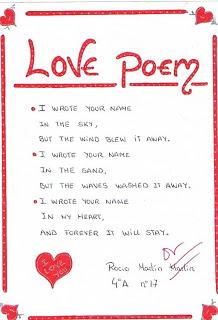 LOVE POEM
I WROTE YOUR NAME
IN THE SKY,
BUT THE WIND BLEW IT AWAY.
I WROTE YOUR NAME
IN THE SAND,
BUT THE WAVES WASHED IT AWAY.
I WROTE YOUR NAME
IN MY HEART,
AND FOREVER IT WILL STAY.
I LOVE YOU
Rocio Martín Martín
4ºA nº17